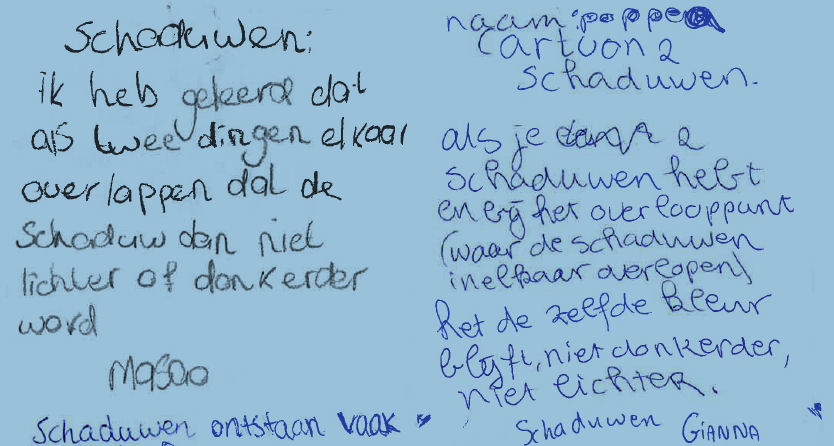 Schaduwen:
ik heb geleerd dat
als twee dingen elkaar
overlappen dat de
schaduw dan niet
lichter of donkerder
word
Masao
Schaduwen ontstaan vaak
naam:
cartoon 2
schaduwen.
als je 2
schaduwen hebt
en bij het overlooppunt
(waar de schaduwen
in elkaar overlopen)
het de zelfde kleur
blijft, niet donkerder,
niet lichter.
Schaduwen GIANNA